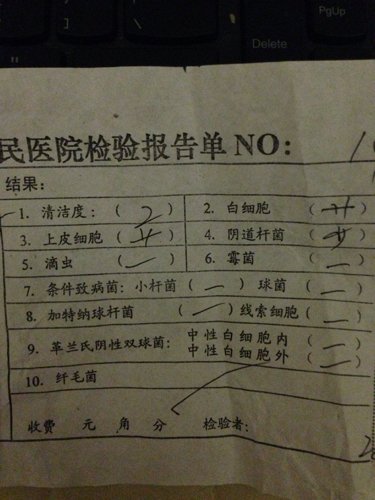 PgUp
Delete
民医院检验报告单 NO:
结果:
1. 清洁度: ( 2 ) 2. 白细胞 ( ++ )
3. 上皮细胞 ( ++ ) 4. 阴道杆菌 ( ++ )
5. 滴虫 ( — ) 6. 霉菌 ( — )
7. 条件致病菌: 小杆菌 ( — ) 球菌 ( — )
8. 加特纳球杆菌 ( — ) 线索细胞 ( — )
9. 革兰氏阴性双球菌: 中性白细胞内 ( — )
中性白细胞外 ( — )
10. 纤毛菌
收费 元 角 分 检验者: